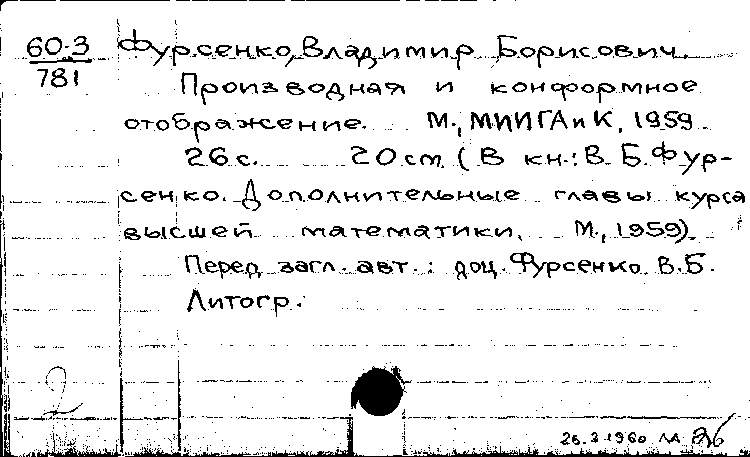 60-3 Фурсенко, Владимир Борисович.
781
Производная и конформное
отображение. М., МИИГАиК, 1959.
26 с. 20 см. (В кн.: В. Б. Фур-
сенко. Дополнительные главы курса
высшей математики. М., 1959).
Перед загл. авт.: доц. Фурсенко В.Б.
Литогр.
2
26.3.1960 ЛА